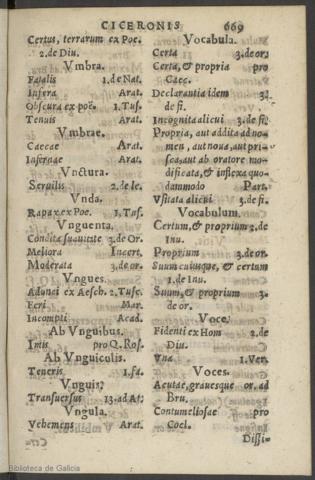 CICERONIS 669
Certus, terrarum ex Poe.
2. de Diu.
Vmbra.
Fatalis 1. de Nat.
Infera Arat.
Obscura ex poe. 1. Tus.
Tenuis Arat.
Vmbrae.
Caecae Arat.
Infernae Arat.
Vnctura.
Seruilis 2. de le.
Vnda.
Rapax ex Poe. 1. Tus.
Vnguenta.
Condita suauitate 3. de Or.
Meliora Incert.
Moderata 3. de or.
Vngues.
Adunci ex Aesch. 2. Tusc.
Feri Mar.
Incompti Acad.
Ab Vnguibus.
Imis pro Q. Ros.
Ab Vnguiculis.
Teneris 1. fa.
Vnguis.
Transuersus 13. ad At.
Vngula.
Vehemens Arat.
Vocabula.
Certa 3. de or.
Certa, & propria pro
Caec.
Declarantia idem 3.
de fi.
Incognita alicui 3. de fi.
Propria, aut addita ad no-
men, aut noua, aut pri-
sca, aut ab oratore mo-
dificata, & inflexa quo-
dammodo Part.
Vsitata alicui 3. de fi.
Vocabulum.
Certum, & proprium 2. de
Inu.
Proprium 3. de or.
Suum cuiusque, & certum
1. de Inu.
Suum, & proprium 3.
de or.
Voce.
Fidenti ex Hom 2. de
Diu.
Vna 1. Ver.
Voces.
Acutae, grauesque or. ad
Bru.
Contumeliosae pro
Coel.
Dissi-
Biblioteca de Galicia